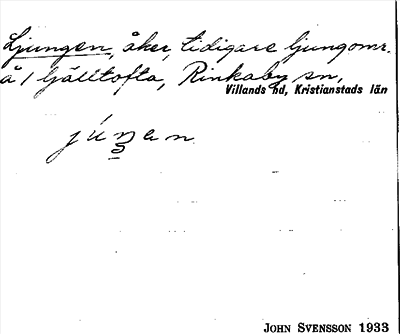 Ljungen, åker, tidigare ljungomr.
å 1 Gälltofta, Rinkaby sn,
Villands hd, Kristianstads län
júŋan
JOHN SVENSSON 1933